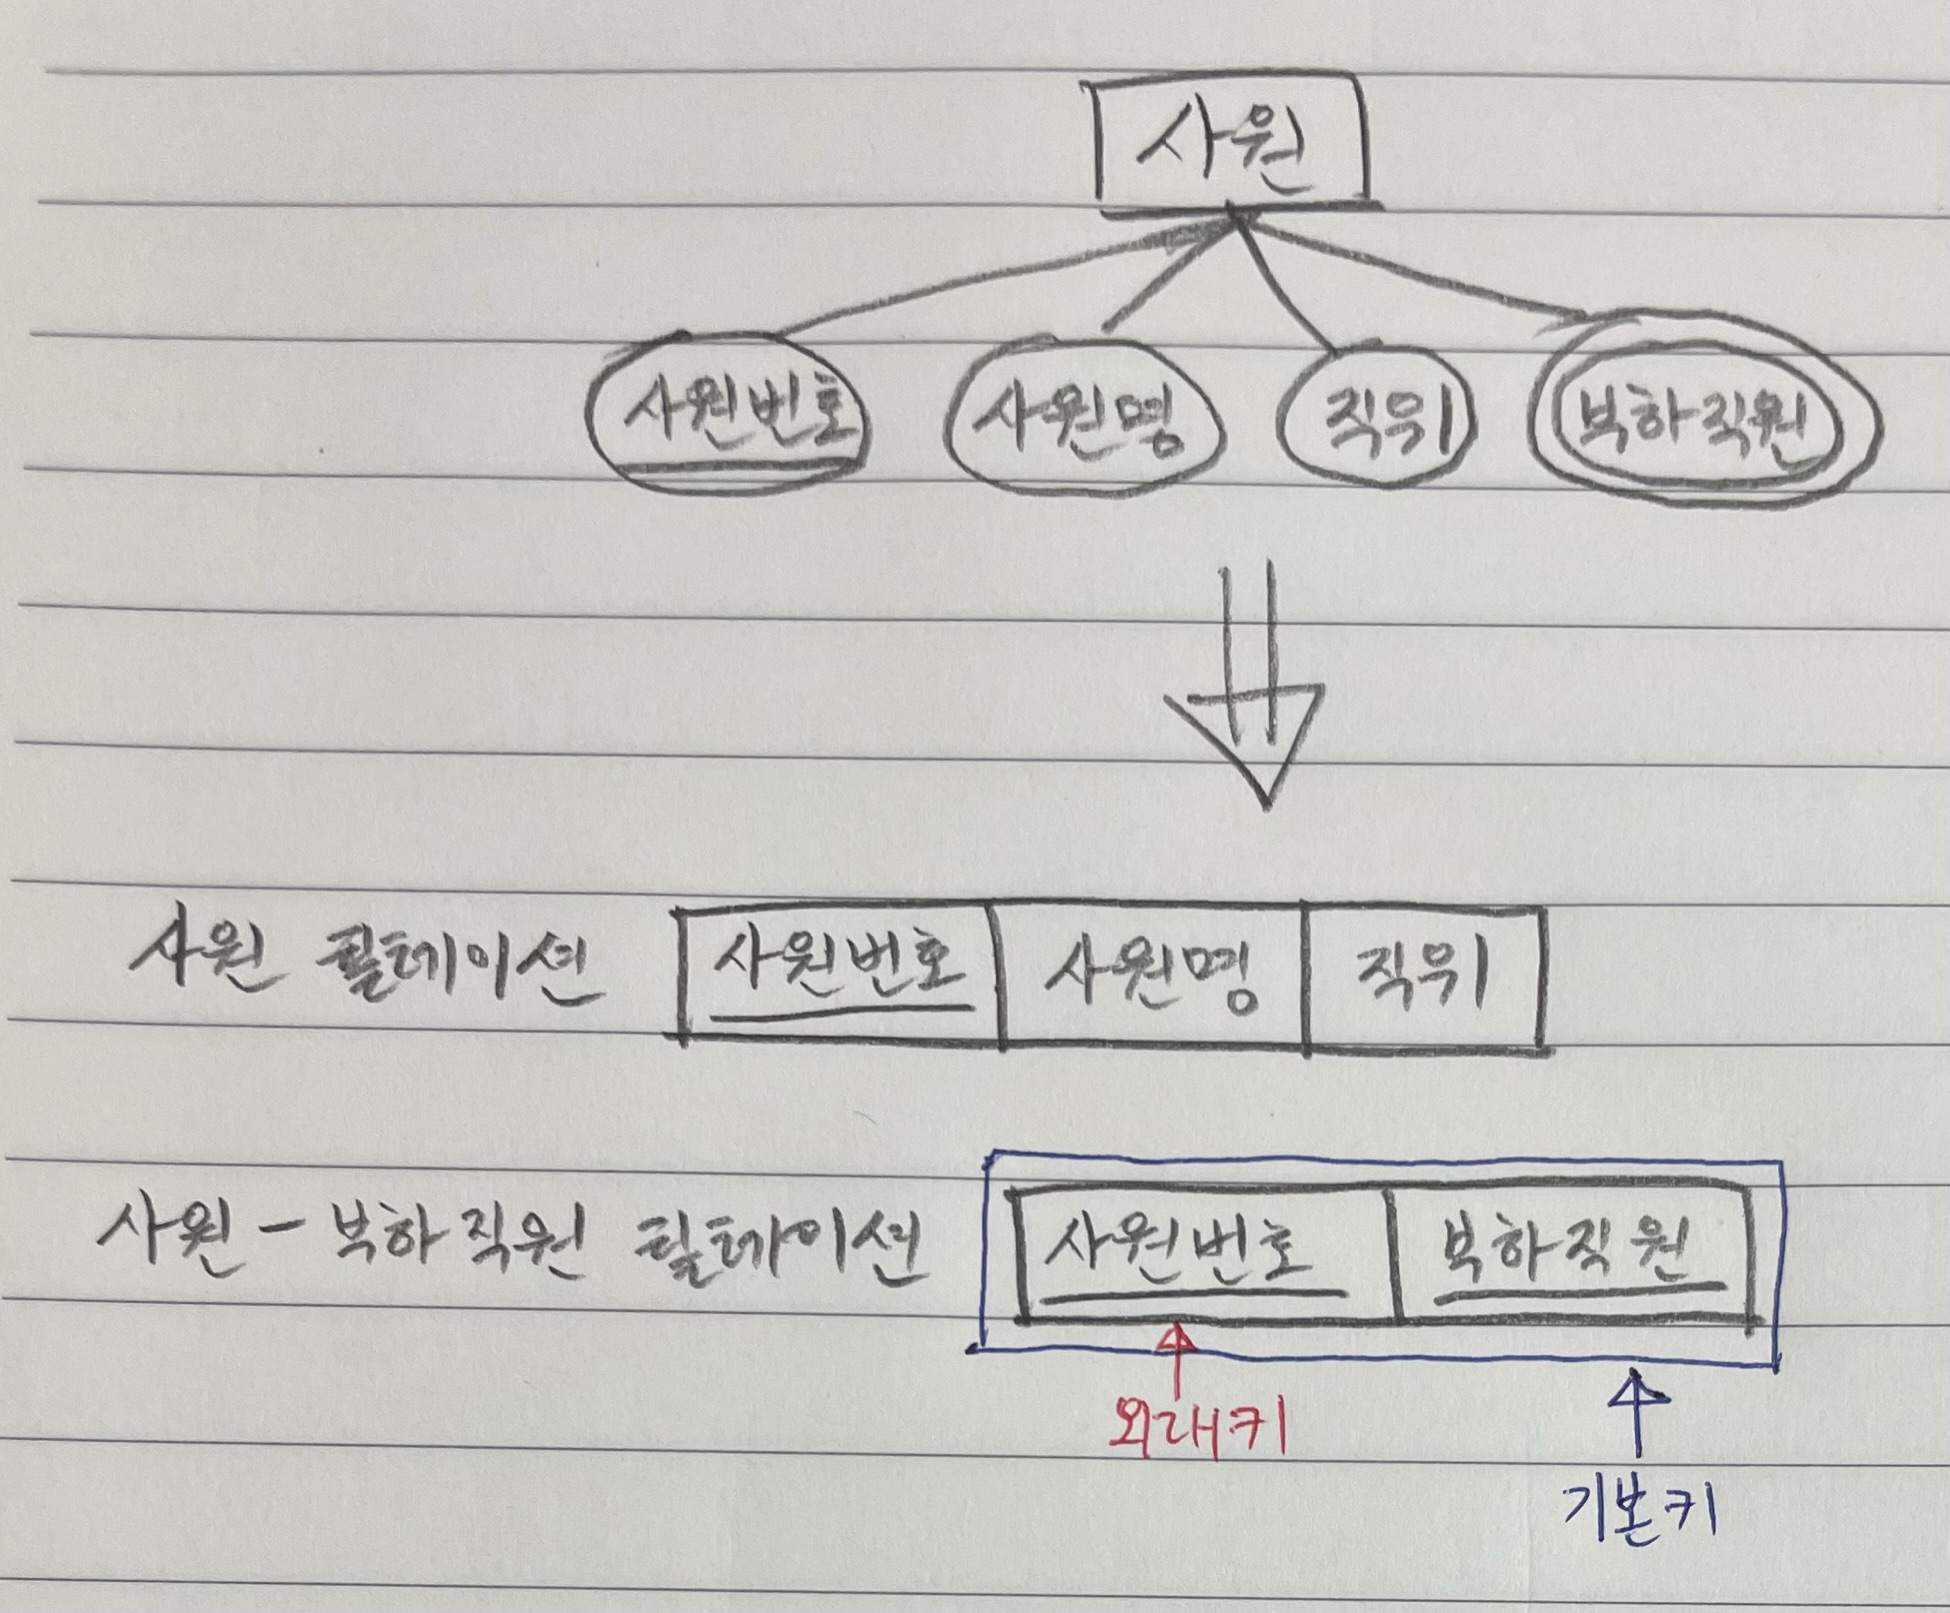 사원
사원번호 사원명 직위 부하직원
사원 릴레이션 사원번호 사원명 직위
사원 - 부하직원 릴레이션 사원번호 부하직원
외래키
기본키